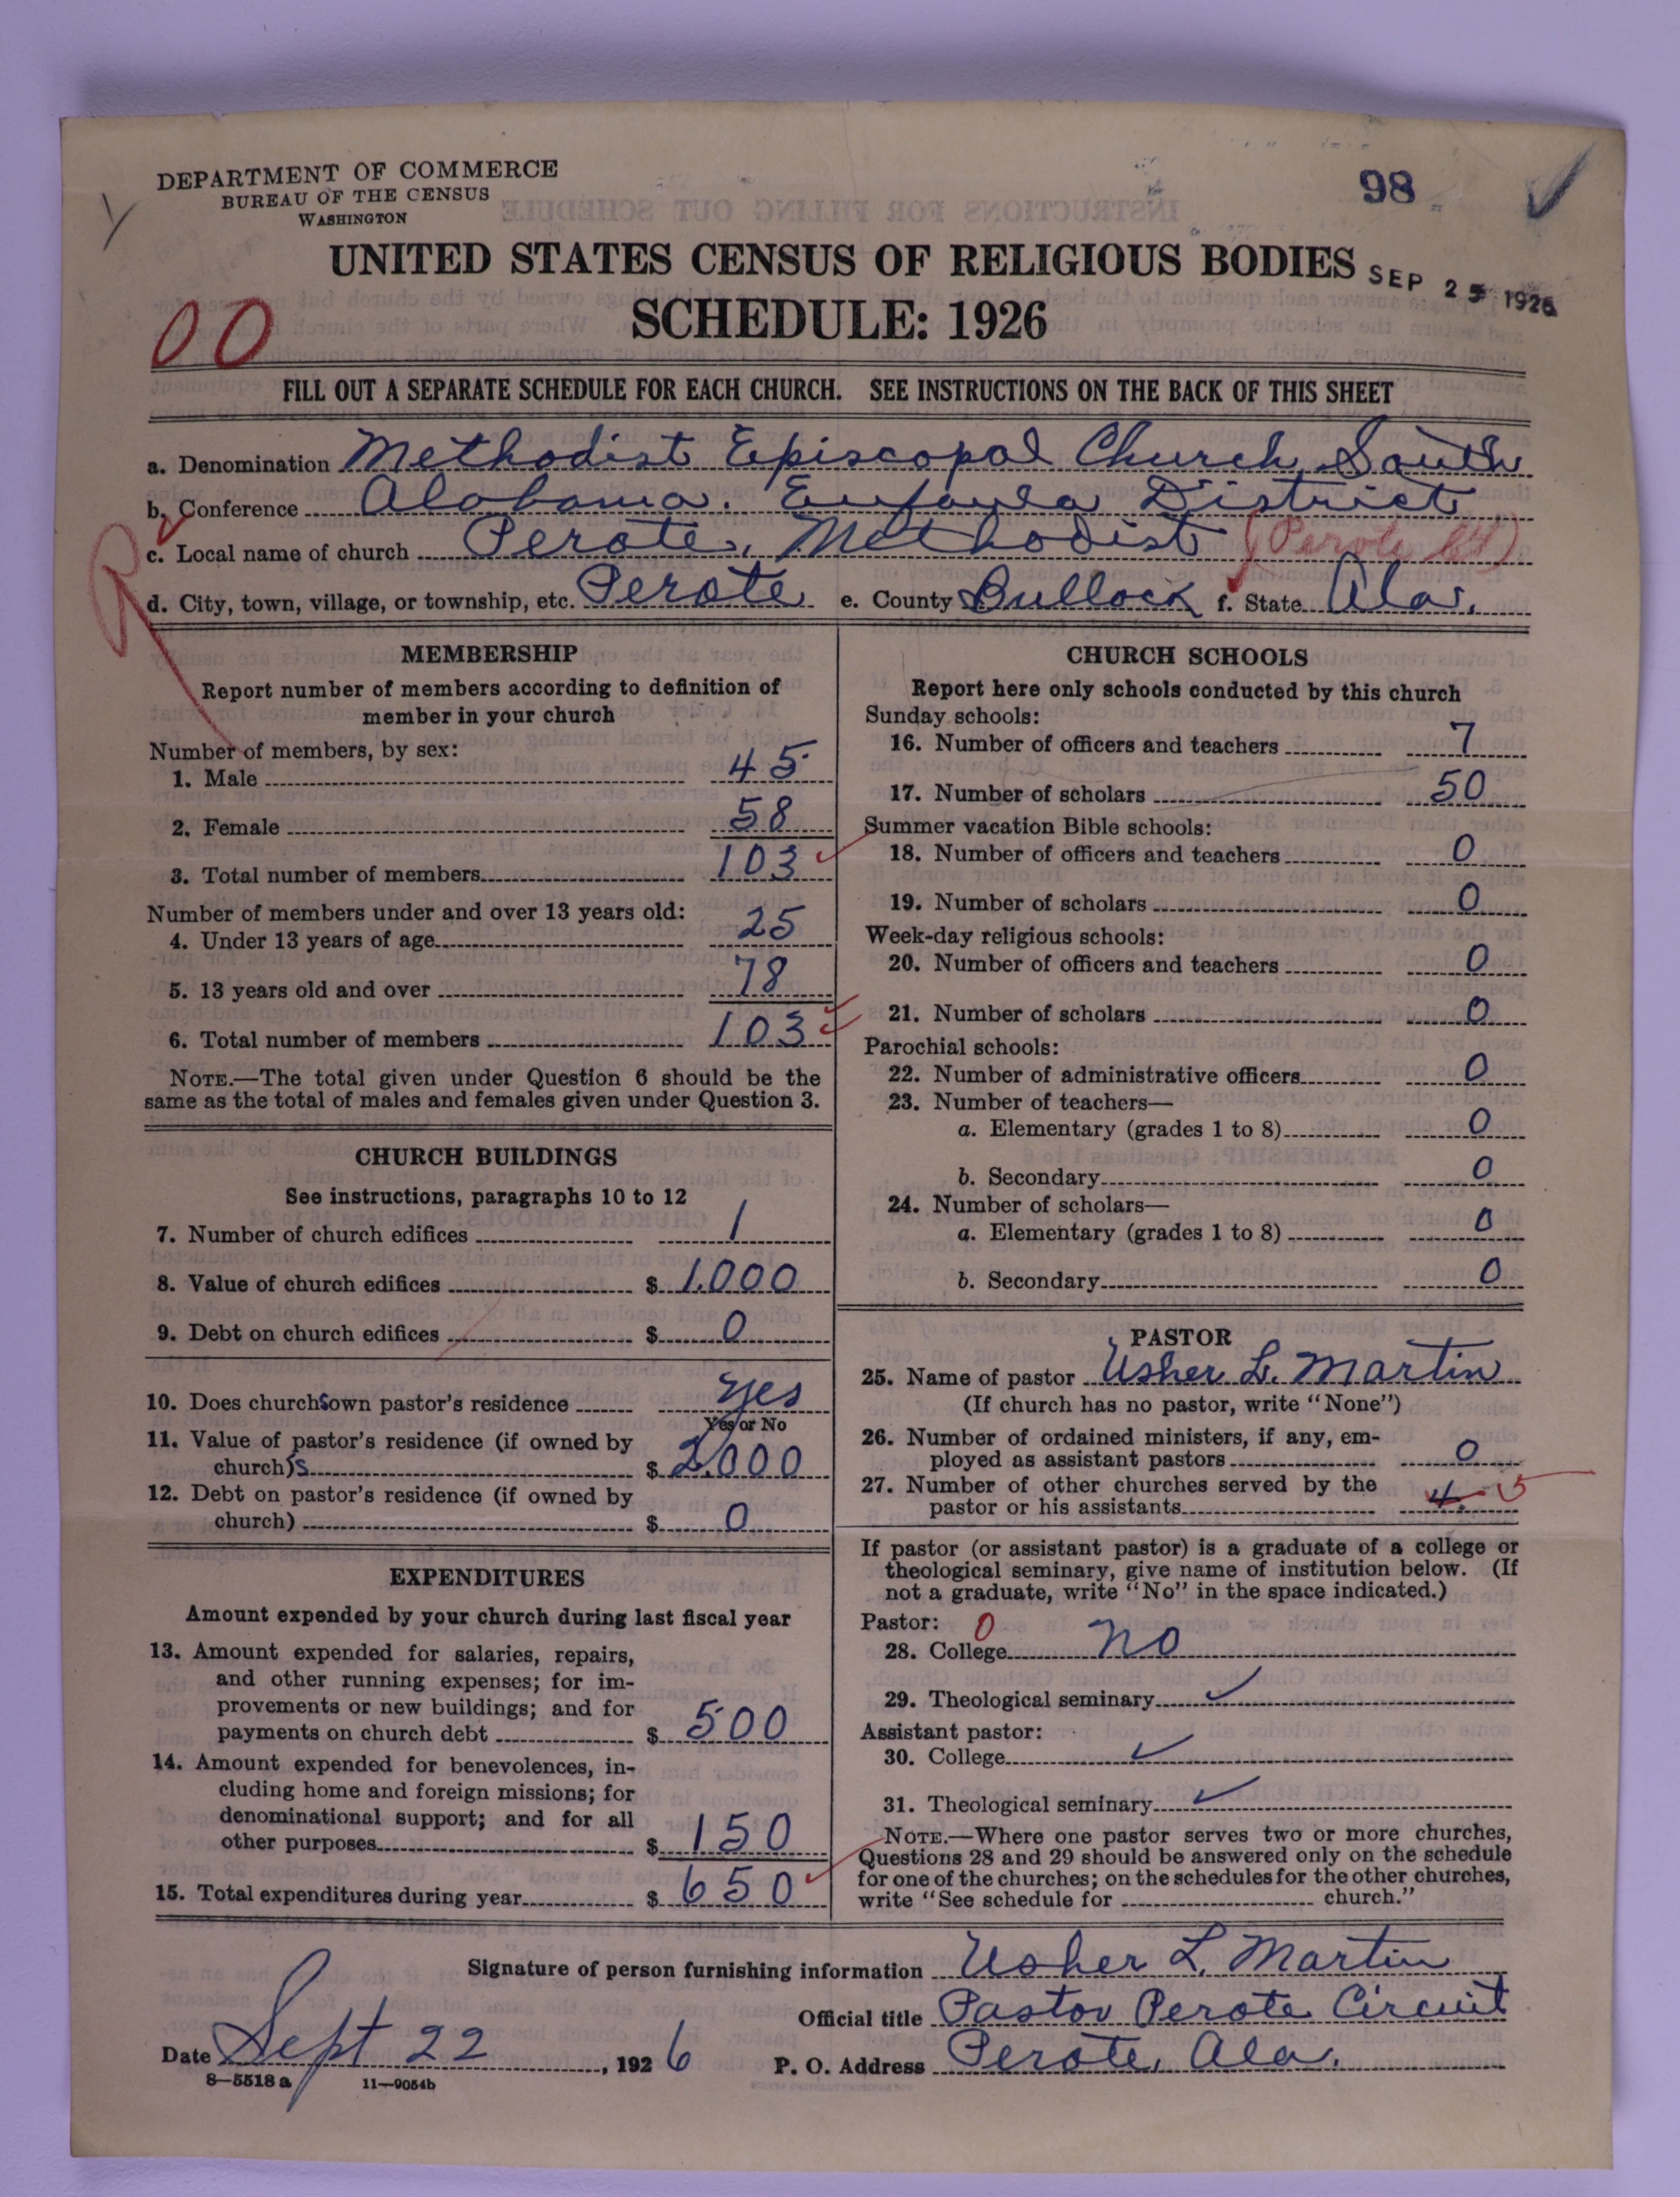 DEPARTMENT OF COMMERCE
BUREAU OF THE CENSUS
WASHINGTON
98
UNITED STATES CENSUS OF RELIGIOUS BODIES
SEP 25 1926
SCHEDULE: 1926
00
FILL OUT A SEPARATE SCHEDULE FOR EACH CHURCH. SEE INSTRUCTIONS ON THE BACK OF THIS SHEET
a. Denomination Methodist Episcopal Church, South
b. Conference Alabama. Eufaula District
c. Local name of church Perote, Methodist (Perote Ct)
d. City, town, village, or township, etc. Perote e. County Bullock f. State Ala.
R
MEMBERSHIP
Report number of members according to definition of
member in your church
Number of members, by sex:
1. Male 45
2. Female 58
3. Total number of members 103
Number of members under and over 13 years old:
4. Under 13 years of age 25
5. 13 years old and over 78
6. Total number of members 103
NOTE.—The total given under Question 6 should be the
same as the total of males and females given under Question 3.
CHURCH BUILDINGS
See instructions, paragraphs 10 to 12
7. Number of church edifices 1
8. Value of church edifices $ 1,000
9. Debt on church edifices $ 0
10. Does churchs own pastor's residence Yes
Yes or No
11. Value of pastor's residence (if owned by
church)s $ 2,000
12. Debt on pastor's residence (if owned by
church) $ 0
EXPENDITURES
Amount expended by your church during last fiscal year
13. Amount expended for salaries, repairs,
and other running expenses; for im-
provements or new buildings; and for
payments on church debt $ 500
14. Amount expended for benevolences, in-
cluding home and foreign missions; for
denominational support; and for all
other purposes $ 150
15. Total expenditures during year $ 650
CHURCH SCHOOLS
Report here only schools conducted by this church
Sunday schools:
16. Number of officers and teachers 7
17. Number of scholars 50
Summer vacation Bible schools:
18. Number of officers and teachers 0
19. Number of scholars 0
Week-day religious schools:
20. Number of officers and teachers 0
21. Number of scholars 0
Parochial schools:
22. Number of administrative officers 0
23. Number of teachers—
a. Elementary (grades 1 to 8) 0
b. Secondary 0
24. Number of scholars—
a. Elementary (grades 1 to 8) 0
b. Secondary 0
PASTOR
25. Name of pastor Usher L. Martin
(If church has no pastor, write "None")
26. Number of ordained ministers, if any, em-
ployed as assistant pastors 0
27. Number of other churches served by the
pastor or his assistants 4. 5
If pastor (or assistant pastor) is a graduate of a college or
theological seminary, give name of institution below. (If
not a graduate, write "No" in the space indicated.)
Pastor: 0
28. College no
29. Theological seminary ✓
Assistant pastor:
30. College ✓
31. Theological seminary ✓
NOTE.—Where one pastor serves two or more churches,
Questions 28 and 29 should be answered only on the schedule
for one of the churches; on the schedules for the other churches,
write "See schedule for church."
Signature of person furnishing information Usher L. Martin
Official title Pastor Perote Circuit
Date Sept 22, 1926 P. O. Address Perote, Ala.
8—5518 a 11—9054b